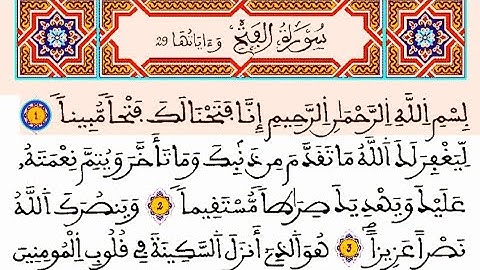 سورة الفتح وءاياتها 29
بِسْمِ اِللَّهِ اِلرَّحْمَٰنِ اِلرَّحِيمِ إِنَّا فَتَحْنَا لَكَ فَتْحاً مُّبِيناً 1
لِّيَغْفِرَ لَكَ اَللَّهُ مَا تَقَدَّمَ مِن ذَنۢبِكَ وَمَا تَأَخَّرَ وَيُتِمَّ نِعْمَتَهُۥ
عَلَيْكَ وَيَهْدِيَكَ صِرَٰطاً مُّسْتَقِيماً 2 وَيَنصُرَكَ اَللَّهُ
نَصْراً عَزِيزاً 3 هُوَ اَلذِےٓ أَنزَلَ اَلسَّكِينَةَ فِے قُلُوبِ اِلْمُومِنِينَ